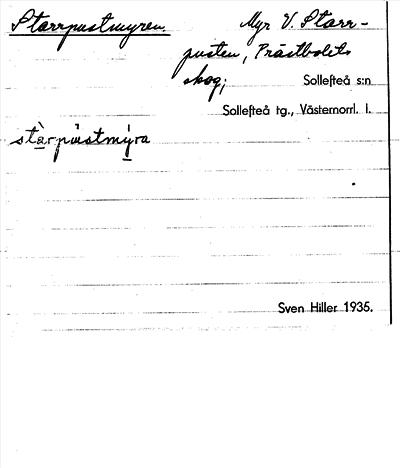 Starrpustmyren.
Myr V. Starr-
pusten, Prästbolets
skog;
Sollefteå s:n
Sollefteå tg., Västernorrl. l.
stàrpùstmýra
Sven Hiller 1935.